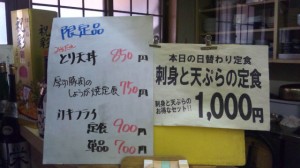 限定品
とり天丼 850円
厚切豚肉の
しょうが焼定食 750円
カキフライ
定食 900円
単品 700円
本日の日替わり定食
刺身と天ぷらの定食
刺身と天ぷらの
お得なセット!!
1,000円